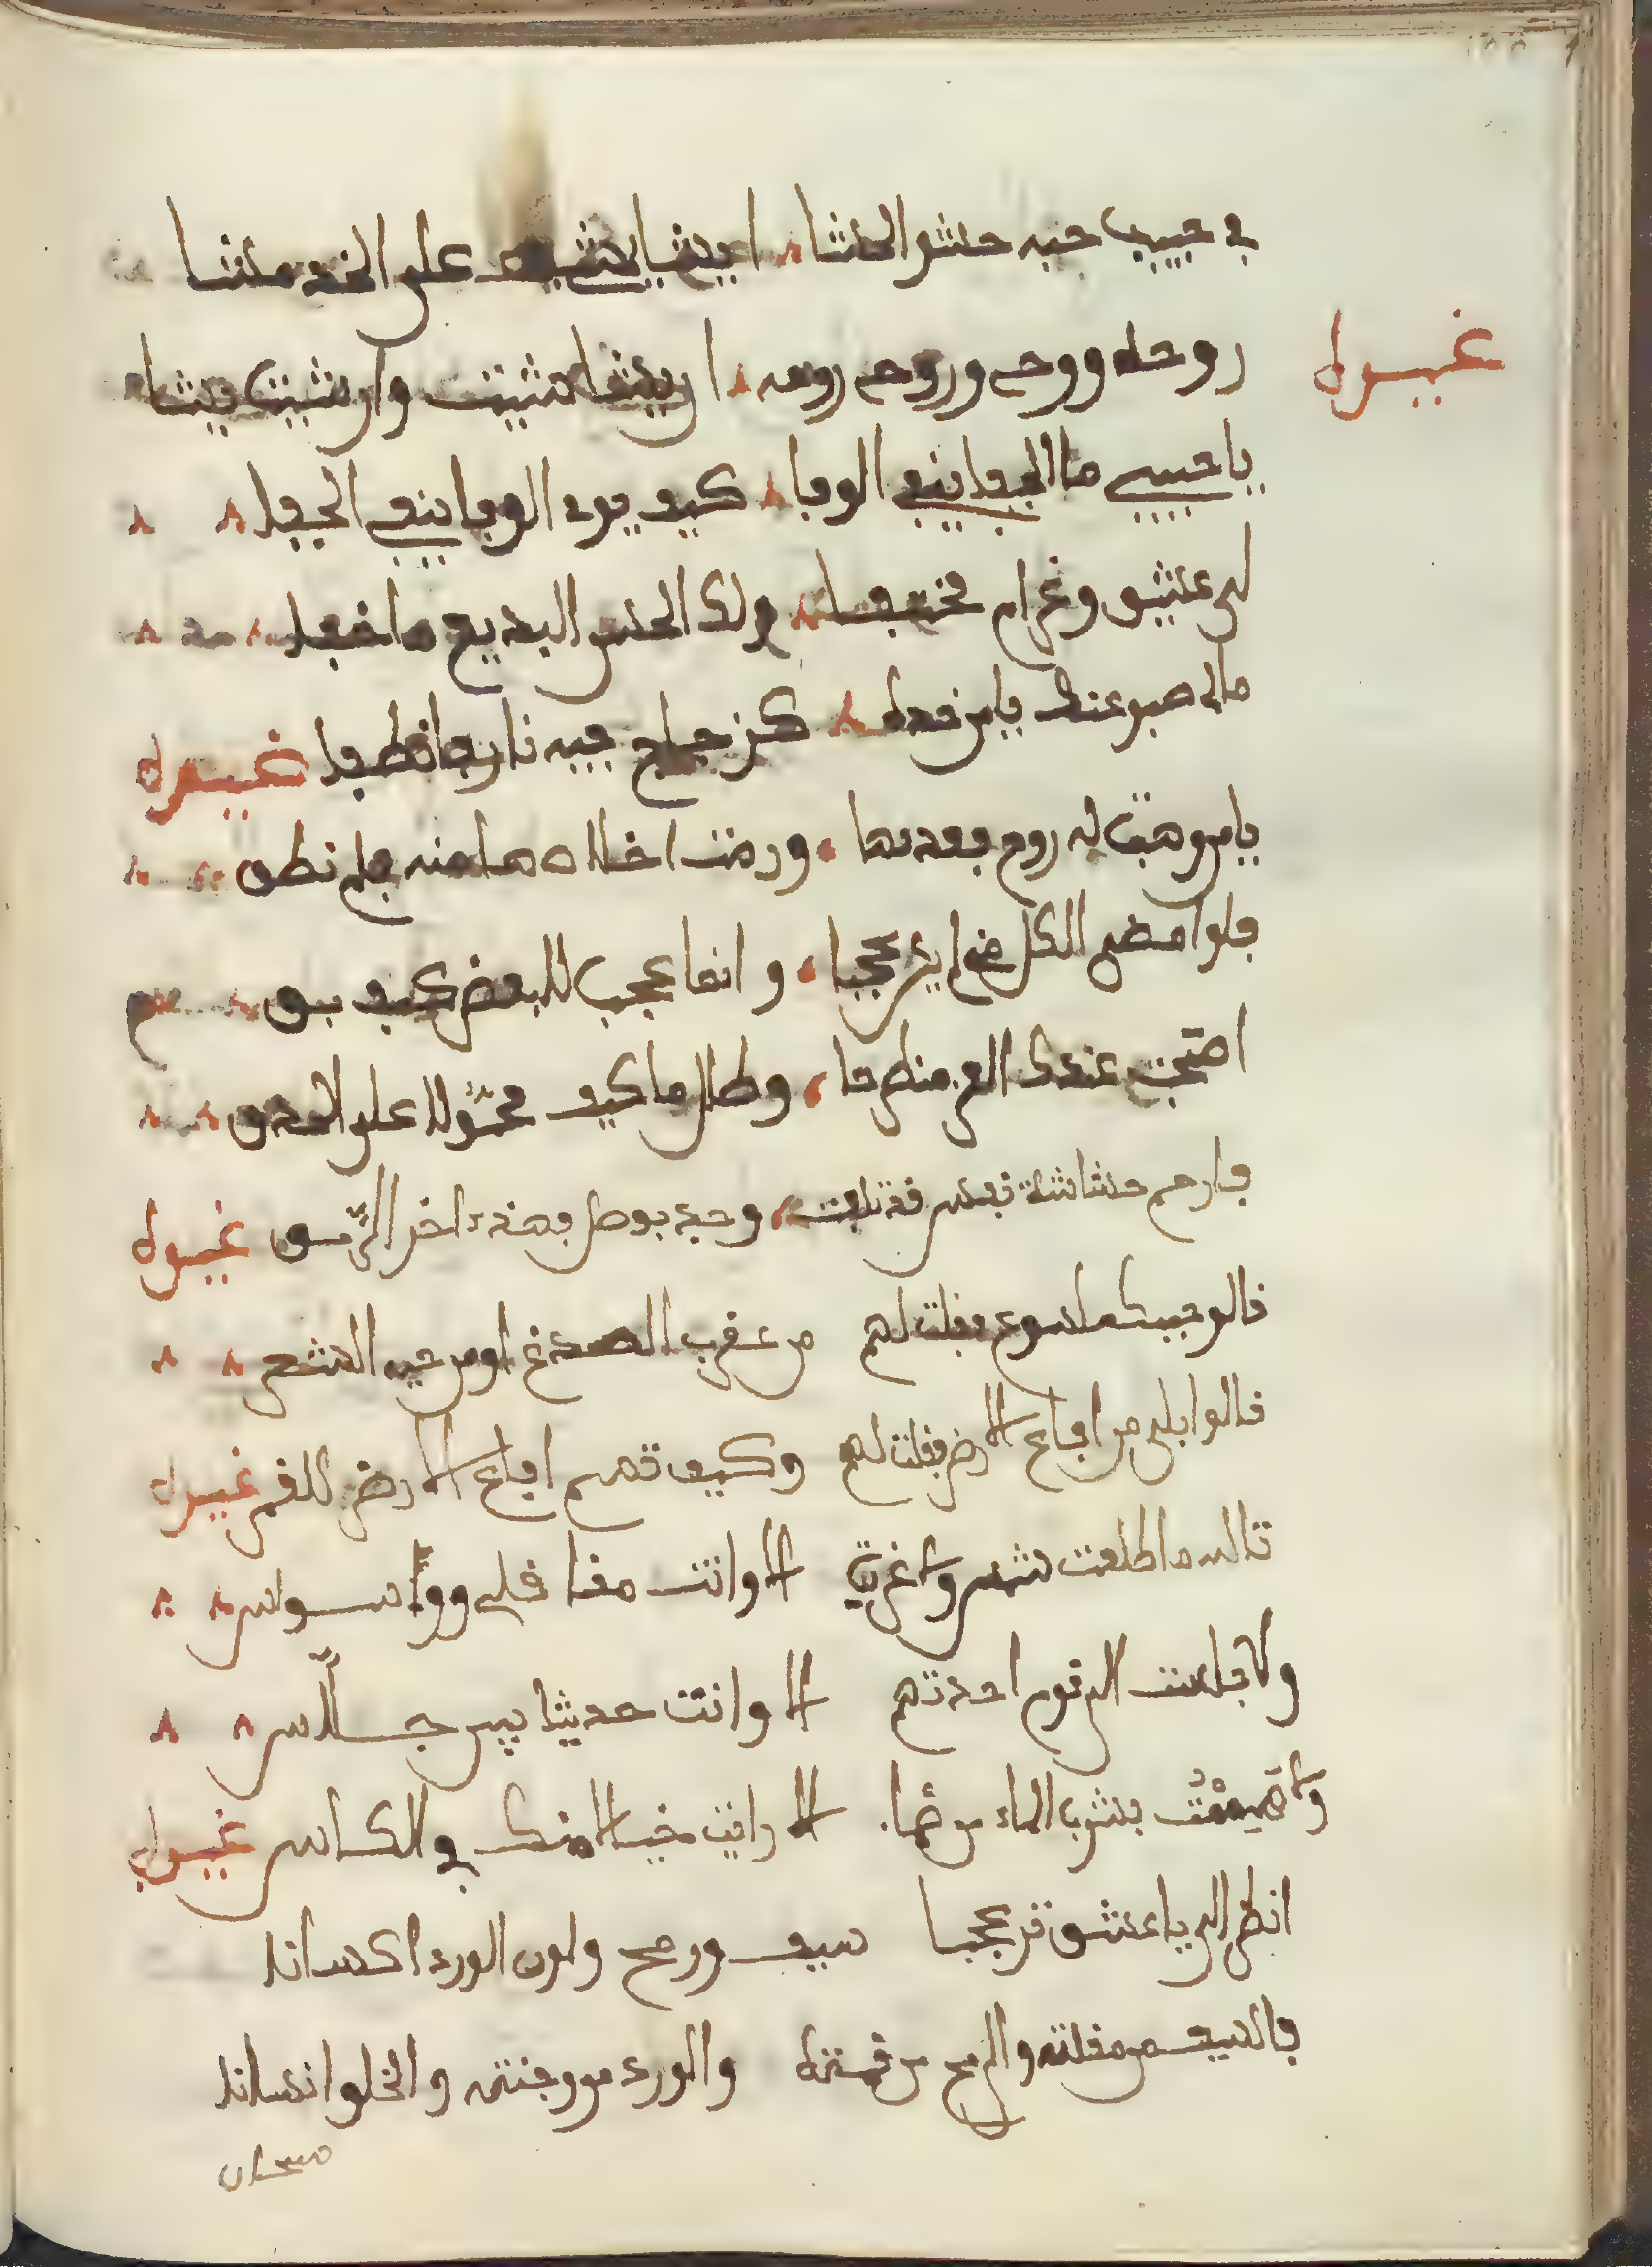 لي حبيب حبه حشو الحشا ان يشا يمشي على الخد مشا
غيره
روحه روحي وروحي روحه ان يشا شيت وان شيت يشا
يا حبيبي ما الجفا ينفي الوفا كيف يود الوفا ينفي الجفا
لي عشق وغرام فيك ولك الحسن البديع ما خفا
ما لي صبر عنك يا من قده كزجاج فيه نار ما انطفا غيره
يا من وهبت له روحي فعذبها ورمت اخلاصها منه فلم نطق
فلو امضى الكل مني لم يكن عجبا وانما عجب للبعض كيف بقي
اصبحت عندك الغي منطرحا وطال ما كيف محمولا على الحدق
فارحم حشاشة نفس قد تلفت وجد بوصل فهذه اخر الرمق غيره
قالو حبيبك ملسوع فقلت لهم من عقرب الصدغ او من حية الشعر
قالوا بلى من افاع الارض فقلت لهم وكيف تسم افاع الارض للقمر غيره
تالله ما طلعت شمس ولا غربت الا وانت منا قلبي ووسواس
ولا جلست الى قوم احدثهم الا وانت حديثا بين جلاس
ولا هممت بشرب الماء من ظما الا رايت خيالا منك في الكاس غيره
انظر الى يا عشق تر عجبا سيف ورمح ولون الورد اكسانا
فالسيف من مقلته والرمح من قمته والورد من وجنته والخلو انسانا